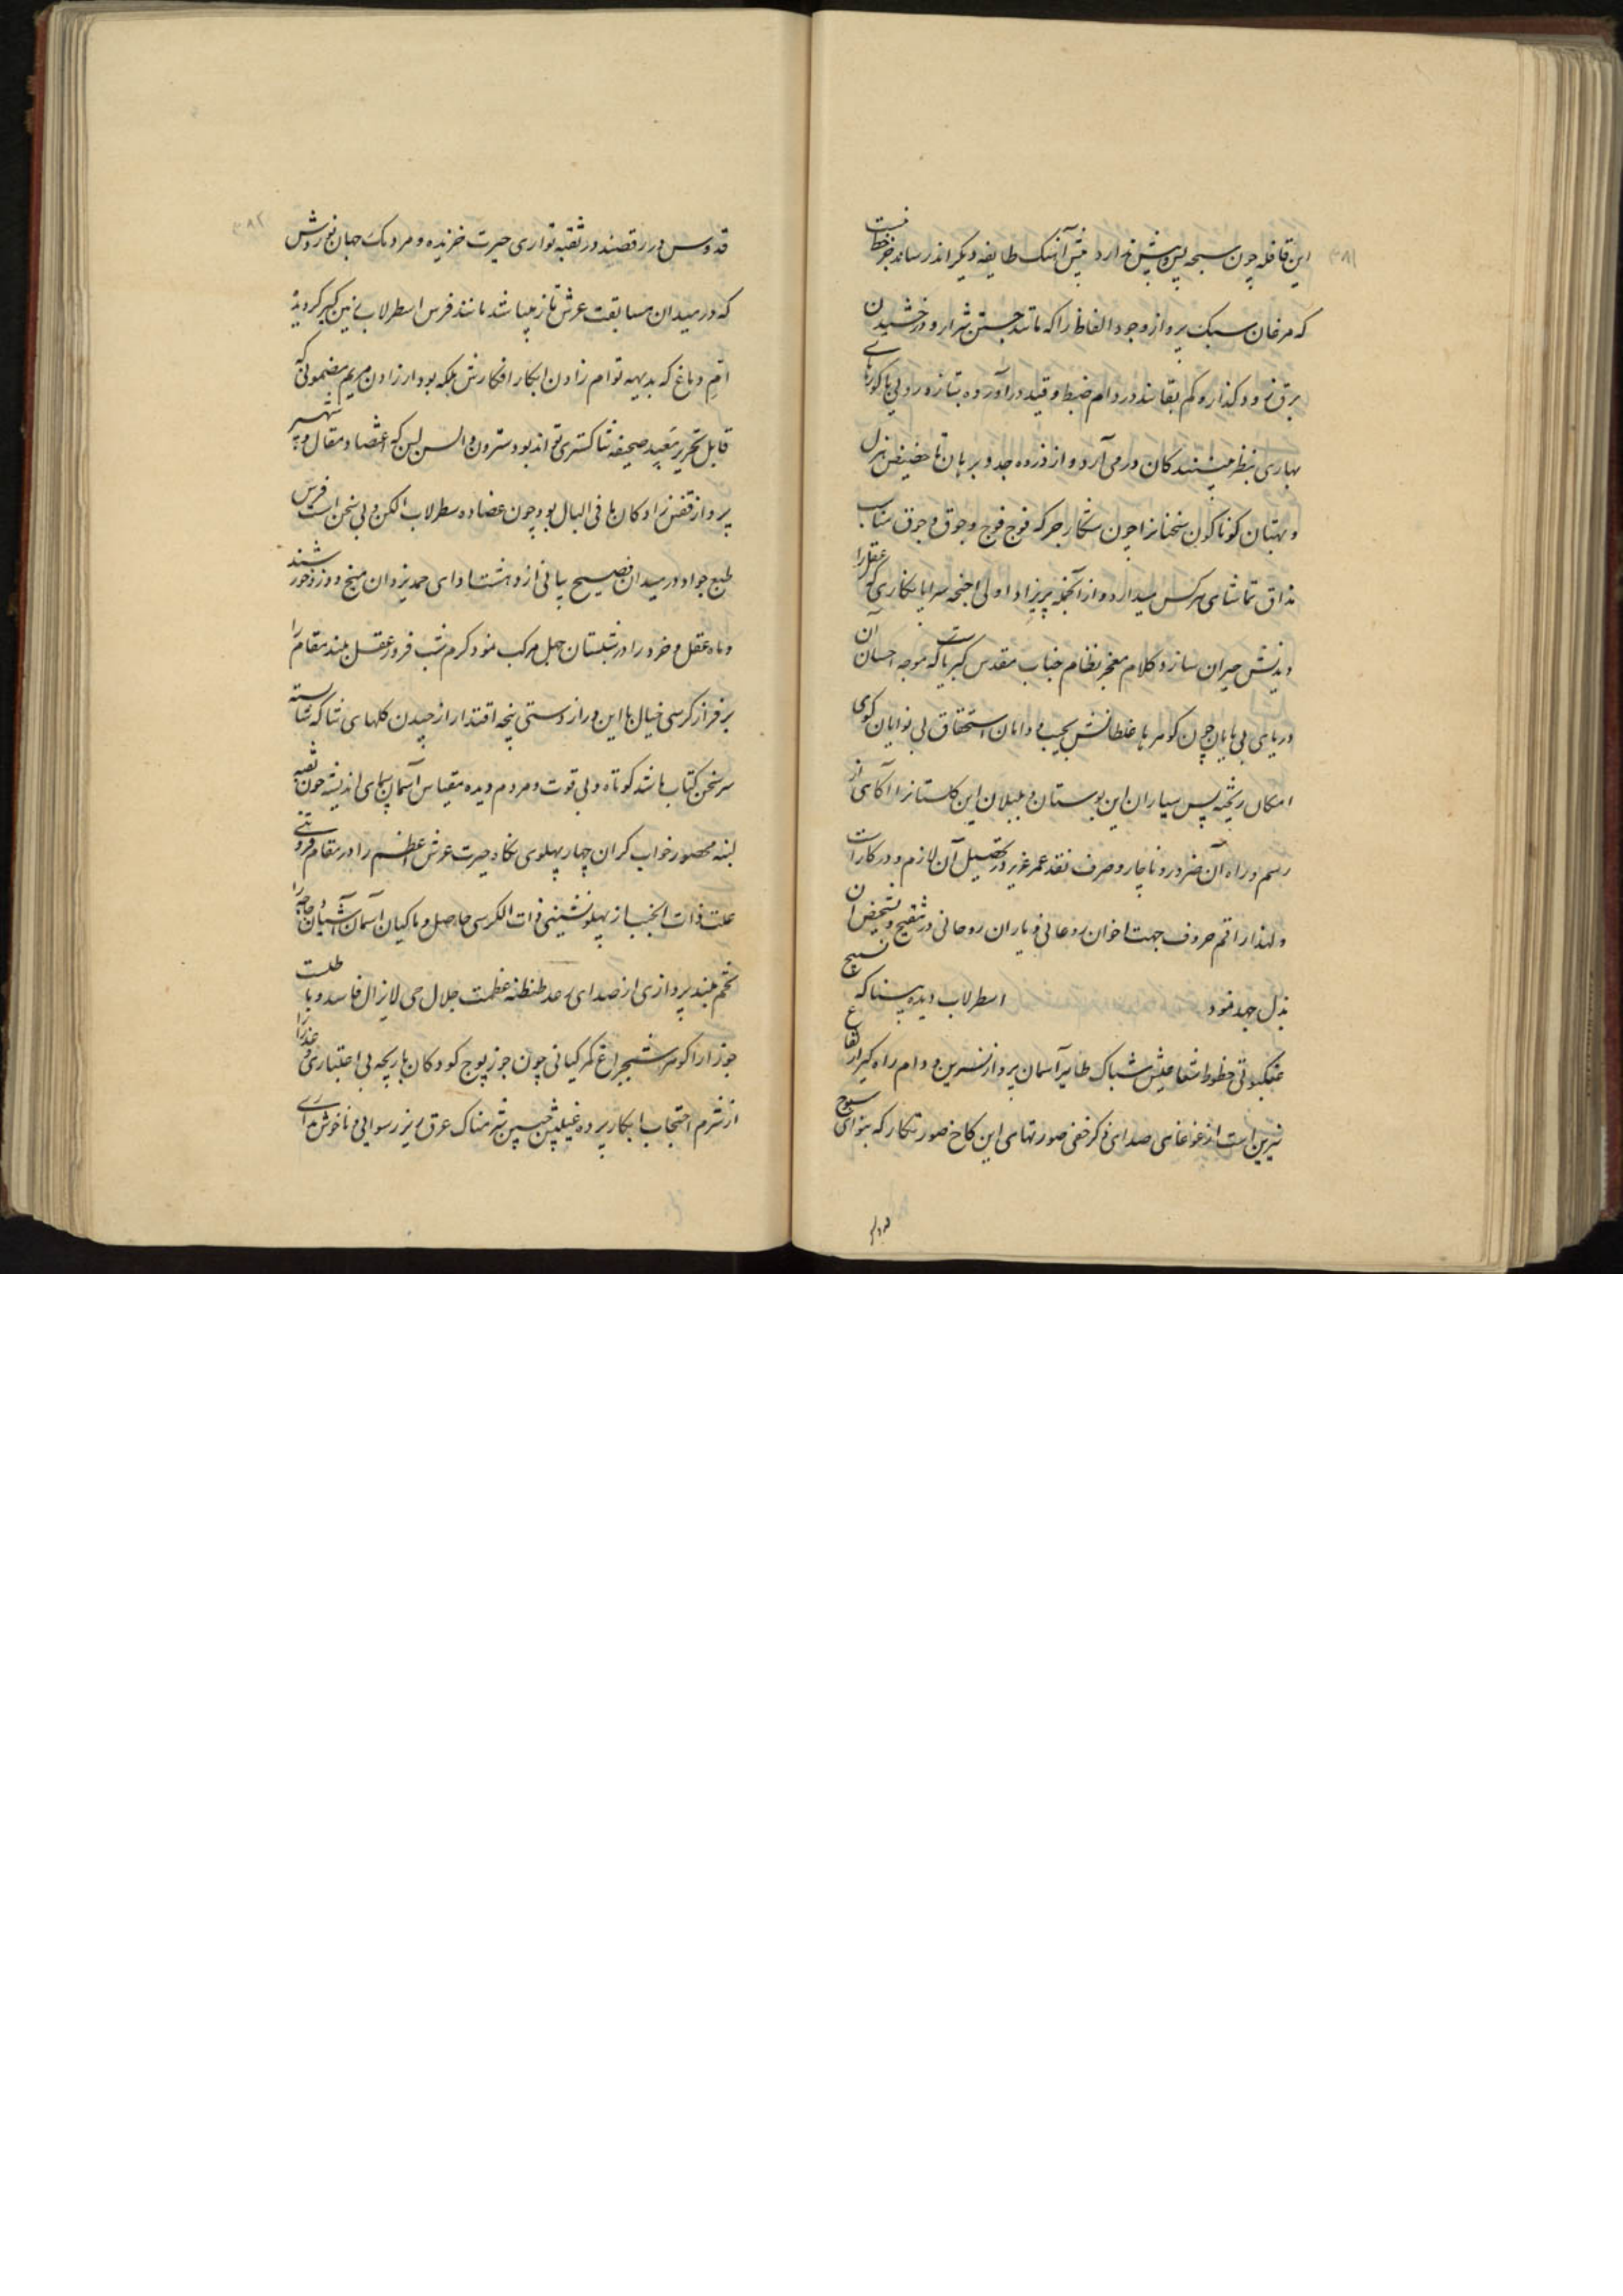 این قافله چون سبحه پس و پیش ندارد پیش آهنگ طایفه دیگر اند رساند جز خط نیست
که مرغان سبک پرواز وجود الفاظ را که مانند جستن شرار و درخشیدن
برق زود گذار و کم بقا اند در دام ضبط و قید درآورده بتازه رویی باکوره‌های
بهاری بنظر بینندگان درمی آرد و از ذروه جد و برهان تا حضیض هزل
و بهتان کوناکون سخنانرا چون شکار جرکه فوج فوج و جوق و جوق مناسب
مذاق تماشای هر کس میدارد و از آنجمله پریزاد اولی اجنحه سراپا نکاری که عقل را
دیدنش حیران سازد کلام معجز نظام جناب مقدس کبریاست که موجه احسان آن
دریای بی پایان چون کوهرها غلطانش بجیب و دامان استحقاق بی نوایان کوی
امکان ریخته پس سیاران این بوستان و بلبلان این کلستانرا آکاهی از
رسم و راه آن ضرور و ناچار و صرف نقد عمر عزیز در تحصیل آن لازم و در کار است
و لهذا راقم حروف جهت اخوان روحانی و یاران روحانی در تنقیح و تشخیص آن
بذل جهد نمود اسطرلاب دیده بیناکه نسیج
عنکبوتی خطوط شعاعیش شباک طایر آسمان پرواز نسرین و دام راه کیر ارتفاع
نیرین است از غوغای صدای ذکر خفی صورتهای این کاخ صور نکار که بنوای سبوح
قدوس
۳۸۱
قدوس در رقصند در ثقبه تواری حیرت خزیده و مردمک جهان نوردش
که در میدان مسابقت عرش تاز بیناشد مانند فرس اسطرلاب زمین کیر کردیده
ام دماغ که بدیهه توام زادن ابکار افکارش بلکه بود از زادن مریم مضمونی که
قابل تحریر صحیفه ثناکستری تواند بود سترون و السن لسن که اعتضاد مقال و شهپر
پرواز قفس زادکان ما فی البال بود چون عضاده سطرلاب الکن و بی سخن است فرس
طبع جواد در میدان فصیح بیانی از دهشت ادای حمد یزدان میخ دوز و خورشید
و ماه عقل و خرد را در شبستان جهل مرکب نمود کرم شب فروز عقل بلند مقام را
بر فراز کرسی خیال با این دراز دستی پنجه اقتدار از چیدن کلهای ثنا که شایسته
سر سخن کتاب باشد کوتاه و بی قوت و مردم دیده مقیاس آسمان پیمای اندیشه چون ثقبه
لبنه محصور خواب کران چهار پهلوی نکاه حیرت عرش اعظم را در مقام فروتنی
علت ذات الجنب از پهلو نشینی ذات الکرسی حاصل و ماکیان آسمان آشیان
تخم بلند پروازی از صدای رعد طنطنه عظمت جلال حی لایزال فاسد و با طلعت
جوزا را کوهر شبچراغ کمر کیانی چون جوز پوچ کودکان بازیچه بی اعتباری و عذرا
از شرم احتجاب ابکار پرده غیبش جبین شرمناک عرق ریز رسوایی و ناخوش
۳۸۲